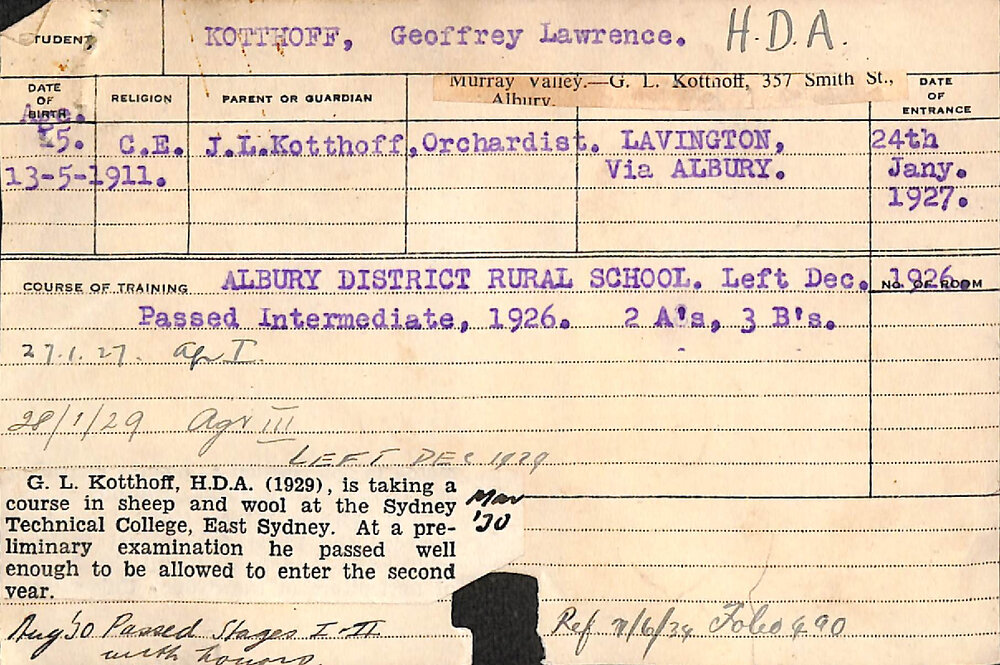 STUDENT, KOTTHOFF, Geoffrey Lawrence. H.D.A.
Murray Valley.—G. L. Kotthoff, 357 Smith St.,
Albury.
DATE OF BIRTH RELIGION PARENT OR GUARDIAN DATE OF ENTRANCE
Age.
15. C.E. J.L.Kotthoff, Orchardist. LAVINGTON, 24th
13-5-1911. Via ALBURY. Jany.
1927.
COURSE OF TRAINING ALBURY DISTRICT RURAL SCHOOL. Left Dec. 1926. NO. OF ROOM
Passed Intermediate, 1926. 2 A's, 3 B's.
27.1.27. Agr I.
28/1/29 Agr III
LEFT DEC 1929
G. L. Kotthoff, H.D.A. (1929), is taking a
course in sheep and wool at the Sydney
Technical College, East Sydney. At a pre-
liminary examination he passed well
enough to be allowed to enter the second
year.
Mar
'30
Aug '30 Passed Stages I-II
with honors.
Ref 7/6/34 Folio 490